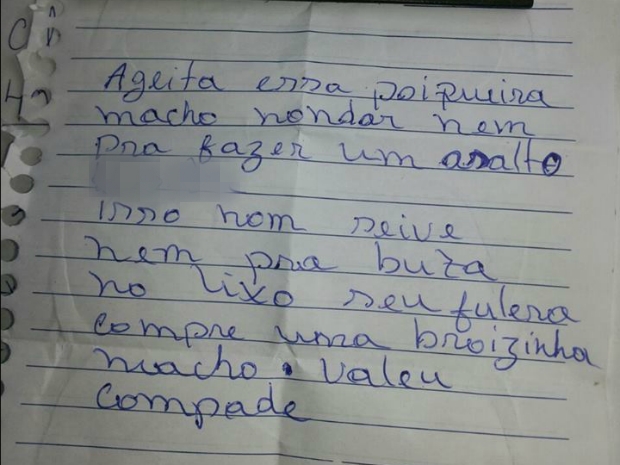 Ageita essa poipueira
macho nondar nem
pra fazer um asalto
isso nom seive
nem pra buza
no lixo seu fulera
compre uma broizinha
macho. valeu
Compade